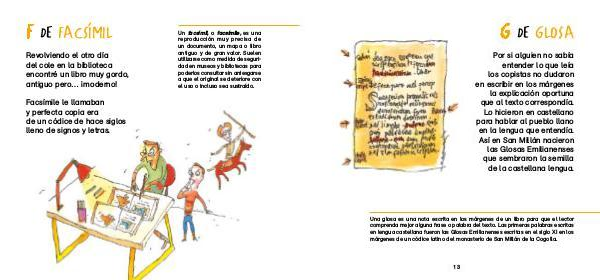 F DE FACSÍMIL
Revolviendo el otro día
del cole en la biblioteca
encontré un libro muy gordo,
antiguo pero... ¡moderno!
Facsímile le llamaban
y perfecta copia era
de un códice de hace siglos
lleno de signos y letras.
Un facsímil, o facsímile, es una
reproducción muy precisa de
un documento, un mapa o libro
antiguo y de gran valor. Suelen
utilizarse como medida de seguri-
dad en museos y bibliotecas para
poderlos consultar sin arriesgarse
a que el original se deteriore con
el uso o incluso sea sustraído.
G DE GLOSA
Por si alguien no sabía
entender lo que leía
los copistas no dudaron
en escribir en los márgenes
la explicación oportuna
que al texto correspondía.
Lo hicieron en castellano
para hablar al pueblo llano
en la lengua que entendía.
Así en San Millán nacieron
las Glosas Emilianenses
que sembraron la semilla
de la castellana lengua.
Una glosa es una nota escrita en los márgenes de un libro para que el lector
comprenda mejor alguna frase o palabra del texto. Las primeras palabras escritas
en lengua castellana fueron las Glosas Emilianenses escritas en el siglo XI en los
márgenes de un códice latino del monasterio de San Millán de la Cogolla.
13